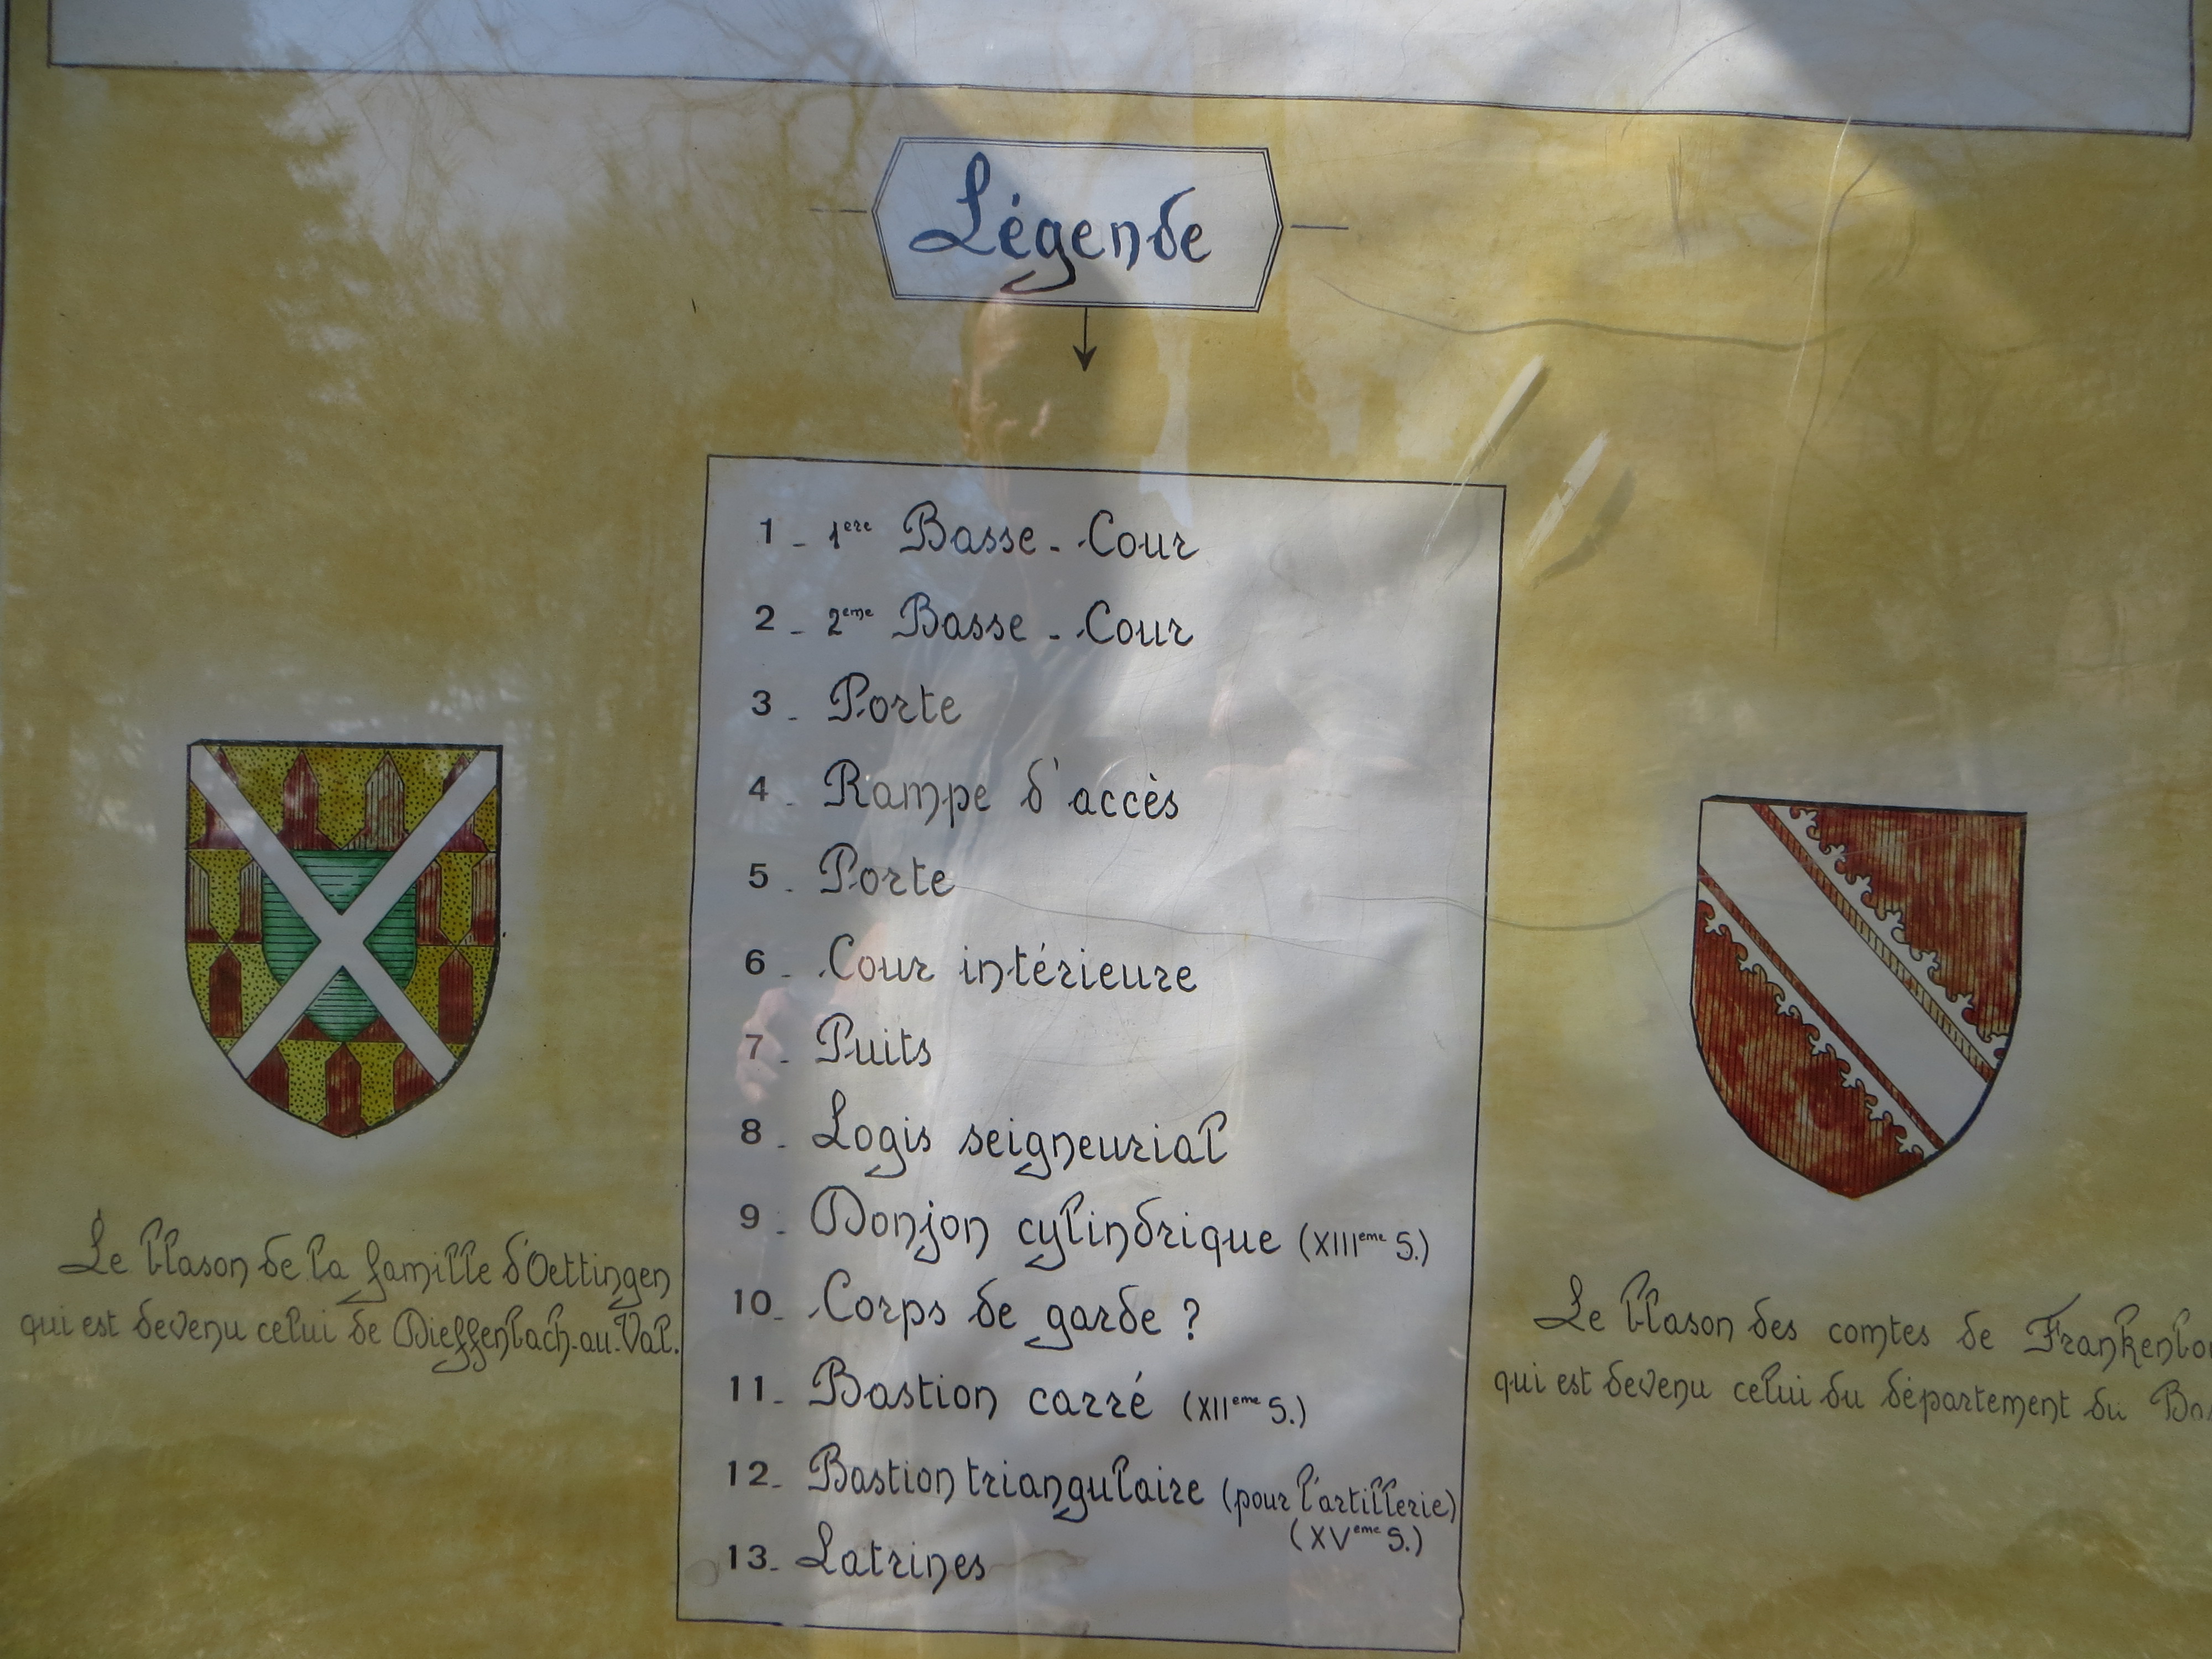 Légende
1 - 1ere Basse - Cour
2 - 2eme Basse - Cour
3 - Porte
4 - Rampe d'accès
5 - Porte
6 - Cour intérieure
7 - Puits
8 - Logis seigneurial
9 - Donjon cylindrique (XIIIeme S.)
10 - Corps de garde ?
11 - Bastion carré (XIIeme S.)
12 - Bastion triangulaire (pour l'artillerie)
(XVeme S.)
13 - Latrines
Le blason de la famille d'Oettingen
qui est devenu celui de Dieffenbach-au-Val.
Le blason des comtes de
qui est devenu celui du département du